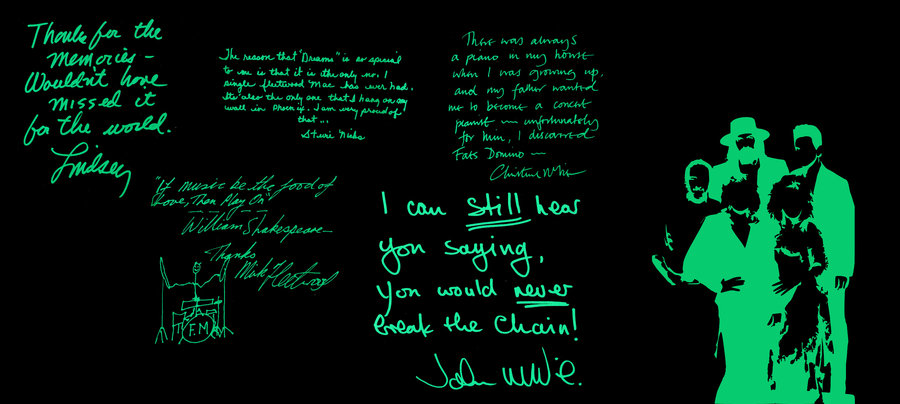 Thanks for the
memories –
Wouldn't have
missed it
for the world.
Lindsey
The reason that "Dreams" is so special
to me is that it is the only no. 1
single fleetwood Mac has ever had.
Its also the only one that I hang on my
wall in Phoenix. I am very proud of
that ...
Stevie Nicks
There was always
a piano in my house
when I was growing up,
and my father wanted
me to become a concert
pianist — unfortunately
for him, I discovered
Fats Domino —
Christine McVie
"If music be the food of
Love, Then Play On"
William Shakespeare—
Thanks
Mick Fleetwood
F.M
I can still hear
you saying,
you would never
break the Chain!
John McVie.